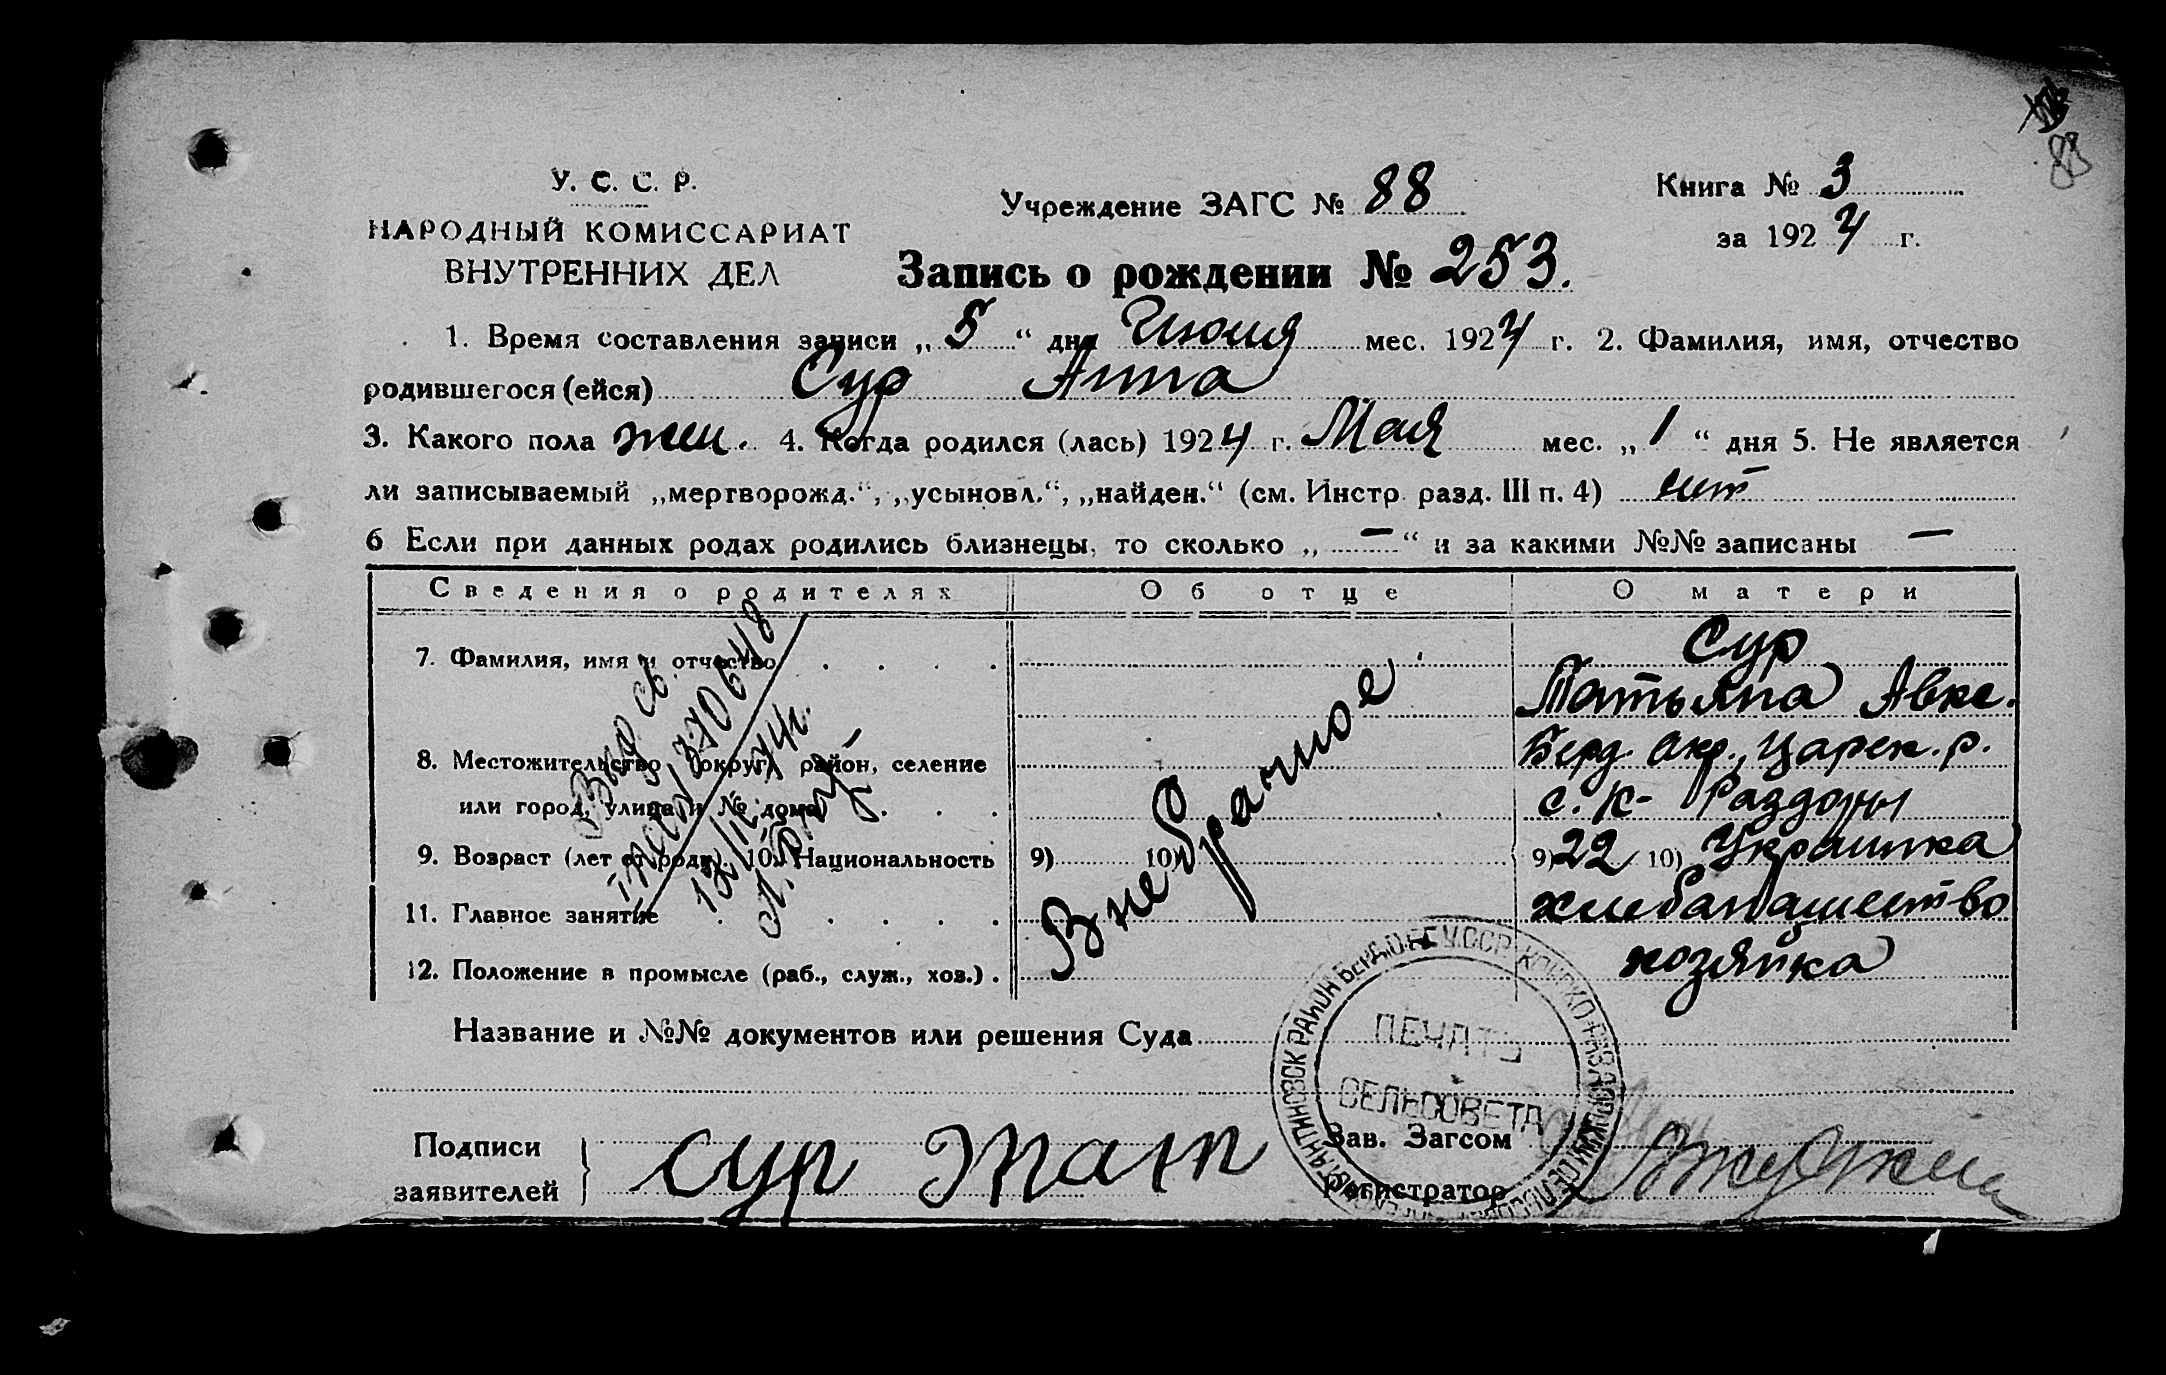 88
У. С. С. Р.
НАРОДНЫЙ КОМИССАРИАТ
ВНУТРЕННИХ ДЕЛ
Учреждение ЗАГС № 88
Книга № 3
за 1924 г.
Запись о рождении № 253.
1. Время составления записи „5“ дня Июля мес. 1924 г. 2. Фамилия, имя, отчество
родившегося (ейся) Сур Анна
3. Какого пола жен. 4. Когда родился (лась) 1924 г. Мая мес. „1“ дня 5. Не является
ли записываемый „мертворожд.“, „усыновл.“, „найден.“ (см. Инстр. разд. III п. 4) нет
6 Если при данных родах родились близнецы, то сколько „—“ и за какими №№ записаны —
Сведения о родителях Об отце О матери
7. Фамилия, имя и отчество Сур
Татьяна Авкс.
8. Местожительство (округ, район, селение Берд. окр., Царек. р.
или город, улица и № дома) с. К- Раздоры
9. Возраст (лет от роду). 10. Национальность 9) 10) 9) 22 10) Украинка
11. Главное занятие хлебопашество
12. Положение в промысле (раб., служ., хоз.) хозяйка
Внебрачное
Выд. св.
370648
Название и №№ документов или решения Суда
ПЕЧАТЬ
СЕЛЬСОВЕТА
Подписи
заявителей
Сур Тат
Зав. Загсом
Регистратор